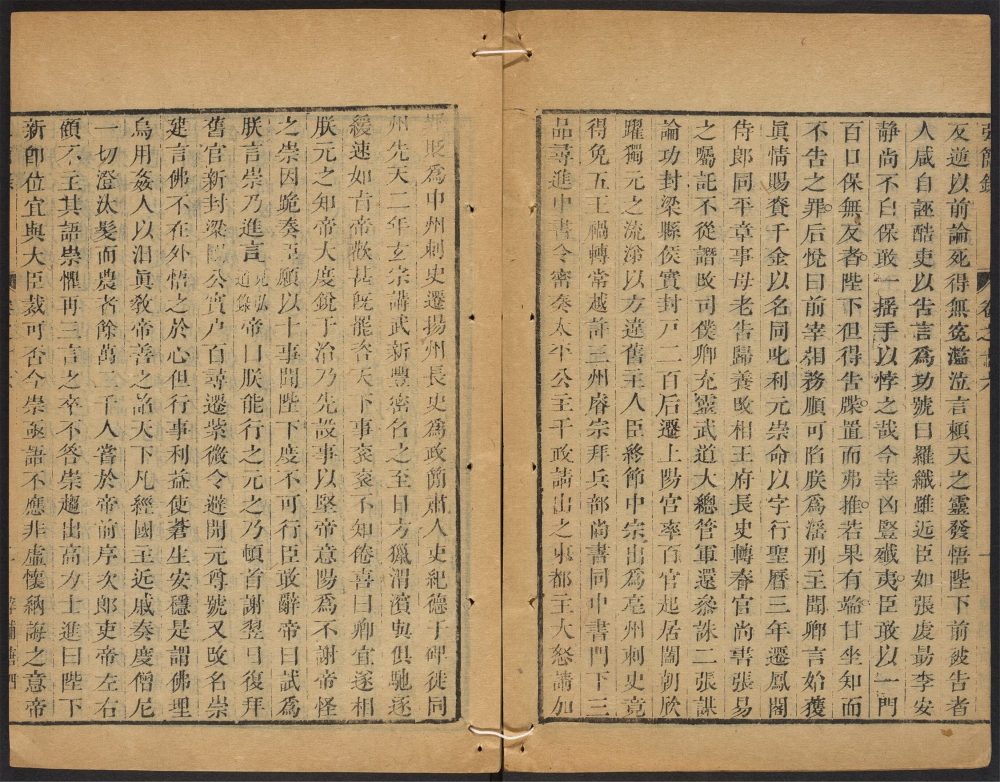 弘簡錄
卷之
反逆以前論死得無冤濫泣言賴天之靈發悟陛下前被告者
人咸自誣酷吏以告言爲功號曰羅織雖近臣如張虔最李安
靜尚不自保敢一摇手以悖之哉今幸凶豎殲夷臣敢以一門
百口保無反者陛下但得告牒置而弗推若果有端甘坐知而
不告之罪后悅曰前宰相務順可陷朕爲滛刑主聞卿言始獲
眞情賜賚千金以名同叱利元崇命以字行聖曆三年遷鳳閣
侍郎同平章事母老告歸養改相王府長史轉春官尚書張易
之囑託不從譖改司僕卿充靈武道大總管軍還參誅二張謀
論功封梁縣侯實封戸二百后遷上陽宮率百官起居闔朝欣
躍獨元之流涕以方違舊主人臣終節中宗出爲亳州刺史竟
得免五王禍轉常越許三州睿宗拜兵部尚書同中書門下三
品尋進中書令密奏太平公主干政請出之東都主大怒請加
罪貶爲申州刺史遷揚州長史爲政簡肅人吏紀德于碑徙同
州先天二年玄宗講武新豐密名之至日方獵渭濱與俱馳逐
緩速如旨帝歡甚旣罷咨天下事袞袞不知倦喜曰卿宜遂相
朕元之知帝大度銳于治乃先設事以堅帝意陽爲不謝帝怪
之崇因跪奏臣願以十事聞陛下度不可行臣敢辭帝曰試爲
朕言崇乃進言見弘道錄帝曰朕能行之元之乃頓首謝翌日復拜
舊官新封梁國公實户百尋遷紫微令避開元尊號又改名崇
建言佛不在外悟之於心但行事利益使蒼生安穩是謂佛理
烏用姦人以汨眞敎帝善之詔天下凡經國王近戚奏度僧尼
一切澄汰髮而農者餘萬二千人嘗於帝前序次郎吏帝左右
顧不主其語崇懼再三言之卒不答崇趨出高力士進曰陛下
新卽位宜與大臣裁可否今崇亟語不應非虛懷納誨之意帝